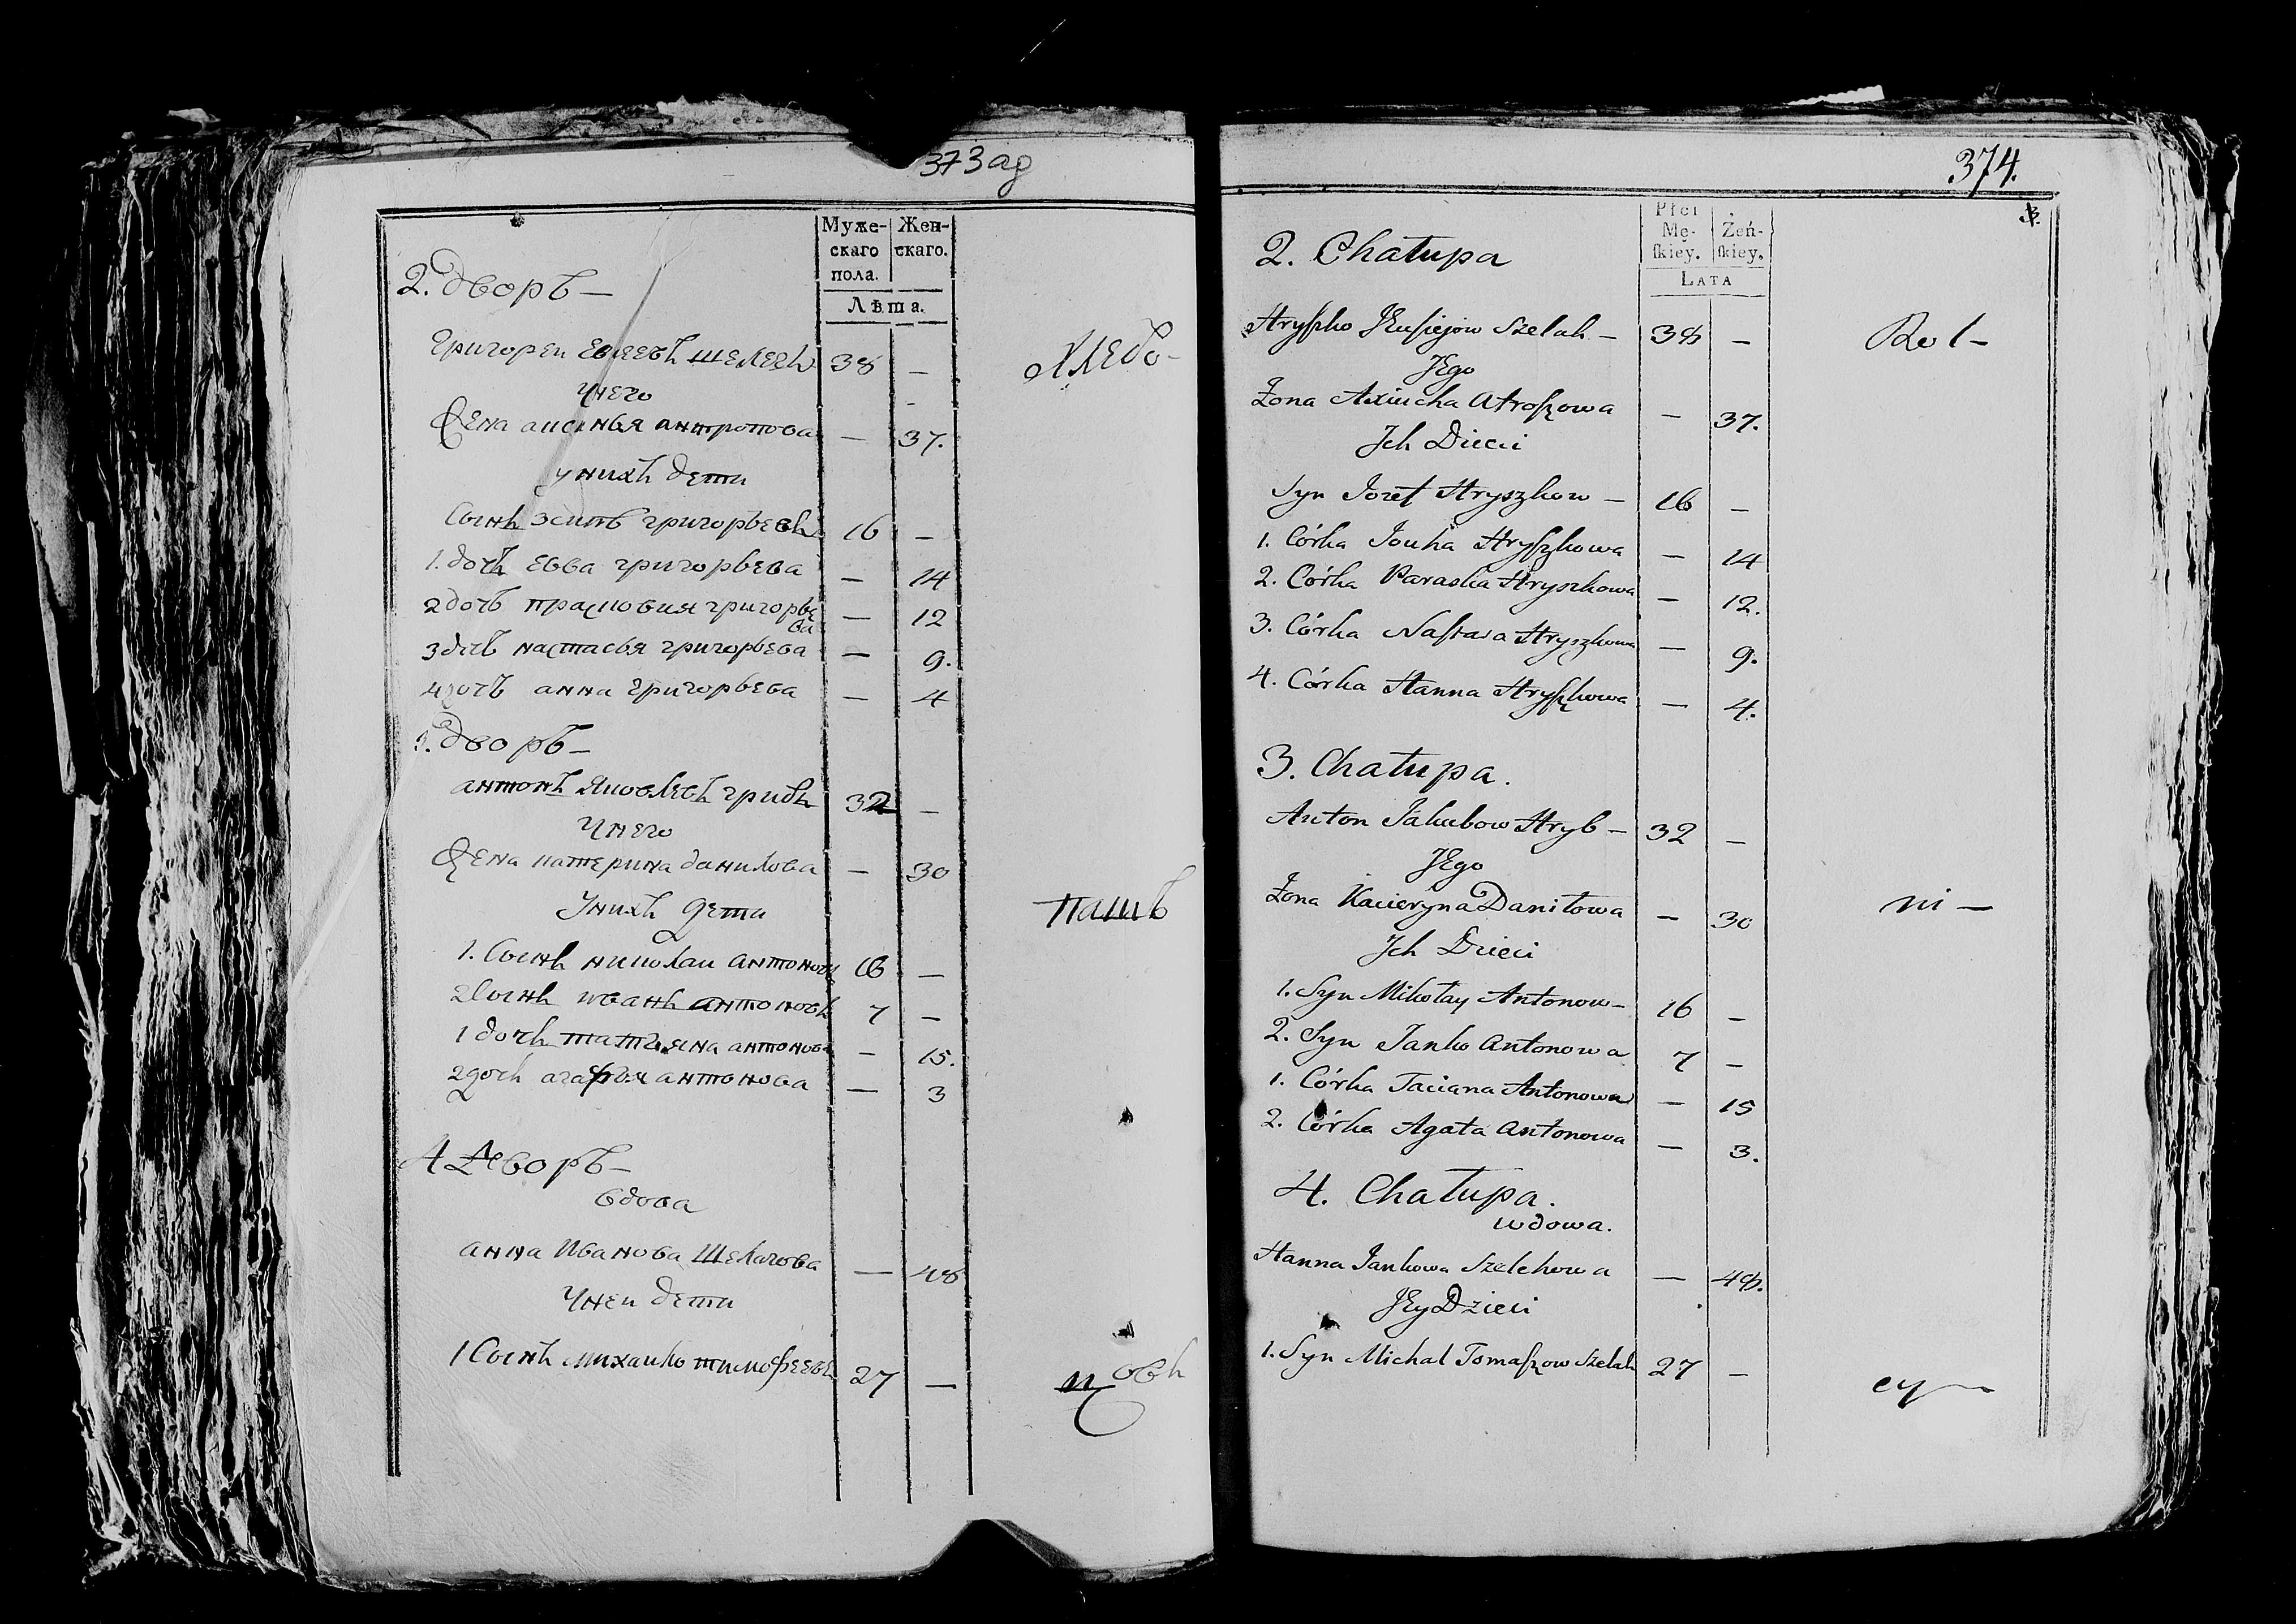 373 ад
Муже-
скаго
пола.
Жен-
скаго.
Лѣта.
2. дворъ —
Григореи Евсѣевъ шелегъ 38 —
Хлебо-
унего
Жена аксинья антропова — 37.
унихъ дети
Сынъ Эсипъ григорьевъ 16 —
1. дочь Евва григорьева — 14
2 дочь прасковия григорье
ва — 12
3 дочь настасья григорьева — 9.
4 дочь анна григорьева — 4
3. дворъ —
антонъ Яковлевъ грибъ 32 —
Унего
Жена катерина данилова — 30
Унихъ дети
пашъ
1. Сынъ николаи антоновъ 16 —
2 Сынъ иванъ антоновъ 7 —
1 дочь татьяна антонова — 15.
2 дочь агафья антонова — 3
4 дворъ —
вдова
анна Иванова Шелагова — 48
Унеи дети
1 Сынъ михаико тимофеевъ 27 —
цовъ
374.
3.
Płci
Mę-
ſkiey.
Żeń-
ſkiey.
LATA
2. Chałupa
Hryſzko JEwsiejow Szelah — 38 —
Rol —
JEgo
Żona Axiucha Atroſzowa — 37.
Jch Dzieci
Syn Jozef Hryszkow — 16 —
1. Córka Jouka Hryſzkowa — 14
2. Córka Paraska Hryszkowa — 12.
3. Córka Naſtasia Hryszkowa — 9.
4. Córka Hanna Hryſzkowa — 4.
3. Chałupa.
Anton Jakubow Hryb — 32 —
JEgo
Żona Kacieryna Daniłowa — 30
ni —
Jch Dzieci
1. Syn Mikołay Antonow — 16 —
2. Syn Janko Antonowa 7 —
1. Córka Taciana Antonowa — 15
2. Córka Agata Antonowa — 3.
4. Chałupa.
wdowa.
Hanna Jankowa Szelehowa — 48.
JEy Dzieci
1. Syn Michał Tomaſzow Szelah 27 —
cy —